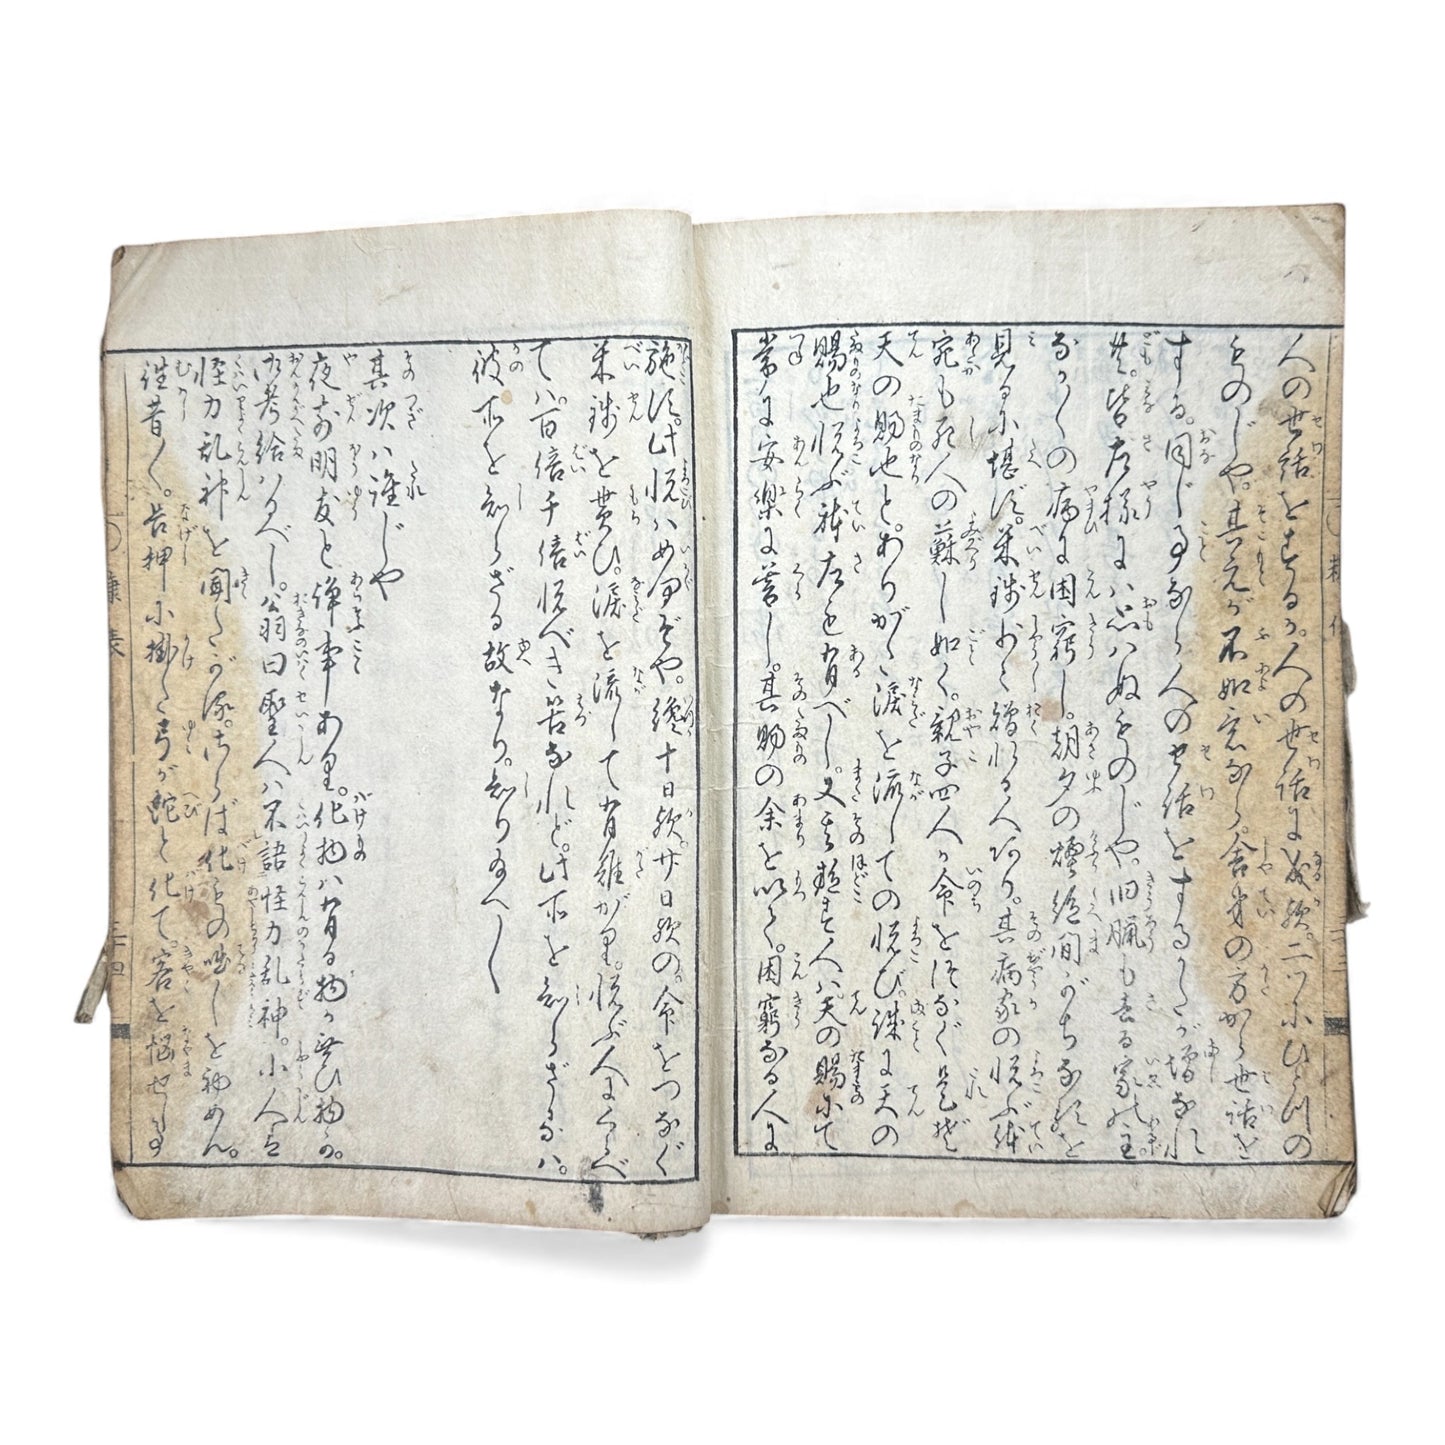 人の世話をするか。人の世話に成歟。二ツにひとつの
ものじや。其元が不如意ながら。舎弟の方から世話を
する。同じ事ながら人の世話をするかたが増なれ
共。皆左様にハ思ハぬものじや。旧臘も去る家の主。
ながくの病に困窮し。朝夕の煙絶間がちなるを
見るに堪ず。米銭少々贈りける人あり。其病家の悦ぶ体
宛も死人の蘇し如く。親子四人が命をつなぐ是ぞ
天の賜也と。ありがた涙を流しての悦び。誠に天の
賜也悦ぶ体左も有べし。又其施す人ハ天の賜にて
常に安楽に暮し。其賜の余を以て。困窮なる人に
施す。此悦ハ如何ぞや。纔十日歟。廿日歟の。命をつなぐ
米銭を貰ひ。涙を流して有難がり。悦ぶ人にくらべ
てハ。百倍千倍悦べき筈なれど。此所を知らざるハ。
彼所を知らざる故なり。知り給へし
其次ハ誰じや
夜前朋友と諍事あり。化物ハ有る物か無ひ物か。
御考給はるべし。翁曰聖人ハ不語怪力乱神。小人は
怪力乱神を聞たがる。さらば化もの咄しを初めん。
往昔々。長押に掛た弓が蛇と化て。客を悩せし事